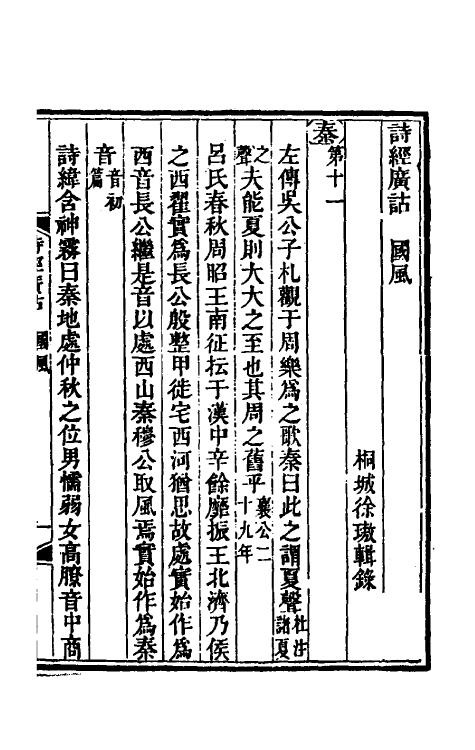 詩經廣詁　國風
桐城徐璈輯錄
秦第十一
左傳吳公子札觀于周樂爲之歌秦曰此之謂夏聲杜注諸夏
之聲夫能夏則大大之至也其周之舊乎襄公二十九年
呂氏春秋周昭王南征抎于漢中辛餘靡振王北濟乃侯
之西翟實爲長公殷整甲徙宅西河猶思故處實始作爲
西音長公繼是音以處西山秦穆公取風焉實始作爲秦
音音初篇
詩緯含神霧曰秦地處仲秋之位男懦弱女高膫音中商
詩經廣詁　國風　一